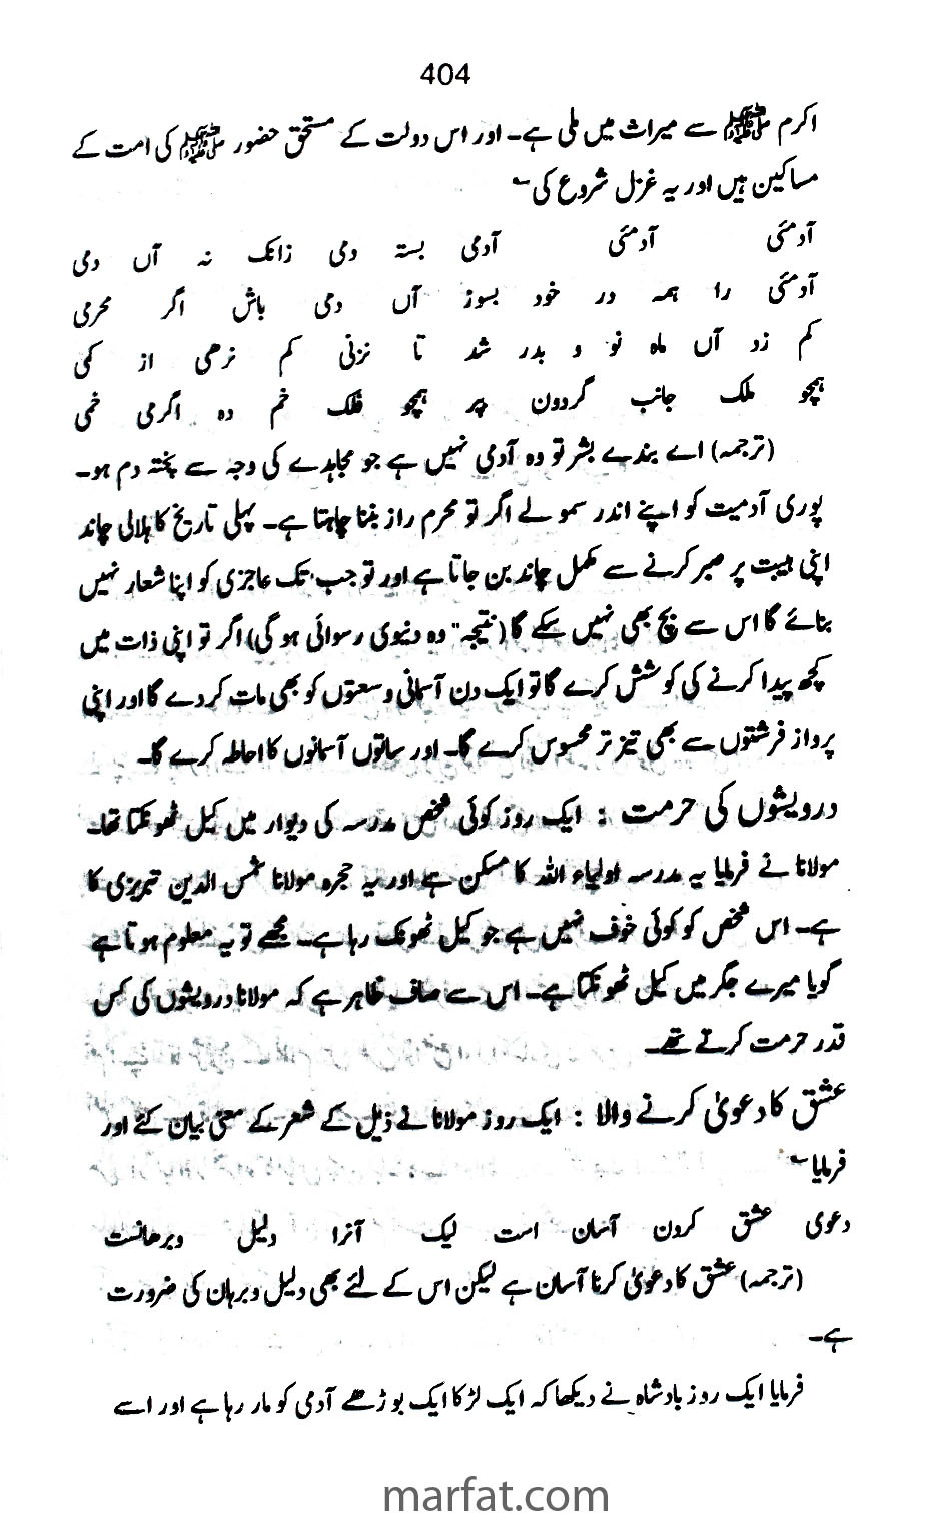 404
اکرم ﷺ سے میراث میں ملی ہے۔ اور اس دولت کے مستحق حضور ﷺ کی امت کے
مساکین ہیں اور یہ غزل شروع کی ؎
آدمئی آدمئی آدمی بستہ دمی زانک نہ آں دمی
آدمئی را ہمہ در خود بسوز آں دمی باش اگر محرمی
کم زد آں ماہ نو و بدر شد تا نزنی کم نرھی از کمی
ہمچو ملک جانب گردون پر ہمچو فلک خم دہ اگرمی خمی
(ترجمہ) اے بندے بشر تو وہ آدمی نہیں ہے جو مجاہدے کی وجہ سے پختہ دم ہو۔
پوری آدمیت کو اپنے اندر سمو لے اگر تو محرم راز بننا چاہتا ہے۔ پہلی تاریخ کا ہلالی چاند
اپنی ہیبت پر صبر کرنے سے مکمل چاند بن جاتا ہے اور تو جب تک عاجزی کو اپنا شعار نہیں
بنائے گا اس سے بچ بھی نہیں سکے گا (نتیجہ" وہ دنیوی رسوائی ہو گی) اگر تو اپنی ذات میں
کچھ پیدا کرنے کی کوشش کرے گا تو ایک دن آسمانی وسعتوں کو بھی مات کر دے گا اور اپنی
پرواز فرشتوں سے بھی تیز تر محسوس کرے گا۔ اور ساتوں آسمانوں کا احاطہ کرے گا۔
درویشوں کی حرمت : ایک روز کوئی شخص مدرسہ کی دیوار میں کیل ٹھونکتا تھا۔
مولانا نے فرمایا یہ مدرسہ اولیاء اللہ کا مسکن ہے اور یہ حجرہ مولانا شمس الدین تبریزی کا
ہے۔ اس شخص کو کوئی خوف نہیں ہے جو کیل ٹھونک رہا ہے۔ مجھے تو یہ معلوم ہوتا ہے
گویا میرے جگر میں کیل ٹھونکتا ہے۔ اس سے صاف ظاہر ہے کہ مولانا درویشوں کی کس
قدر حرمت کرتے تھے۔
عشق کا دعویٰ کرنے والا : ایک روز مولانا نے ذیل کے شعر کے معنی بیان کئے اور
فرمایا ؎
دعوی عشق کردن آسان است لیک آنرا دلیل وبرھانست
(ترجمہ) عشق کا دعویٰ کرنا آسان ہے لیکن اس کے لئے بھی دلیل و برہان کی ضرورت
ہے۔
فرمایا ایک روز بادشاہ نے دیکھا کہ ایک لڑکا ایک بوڑھے آدمی کو مار رہا ہے اور اسے
marfat.com